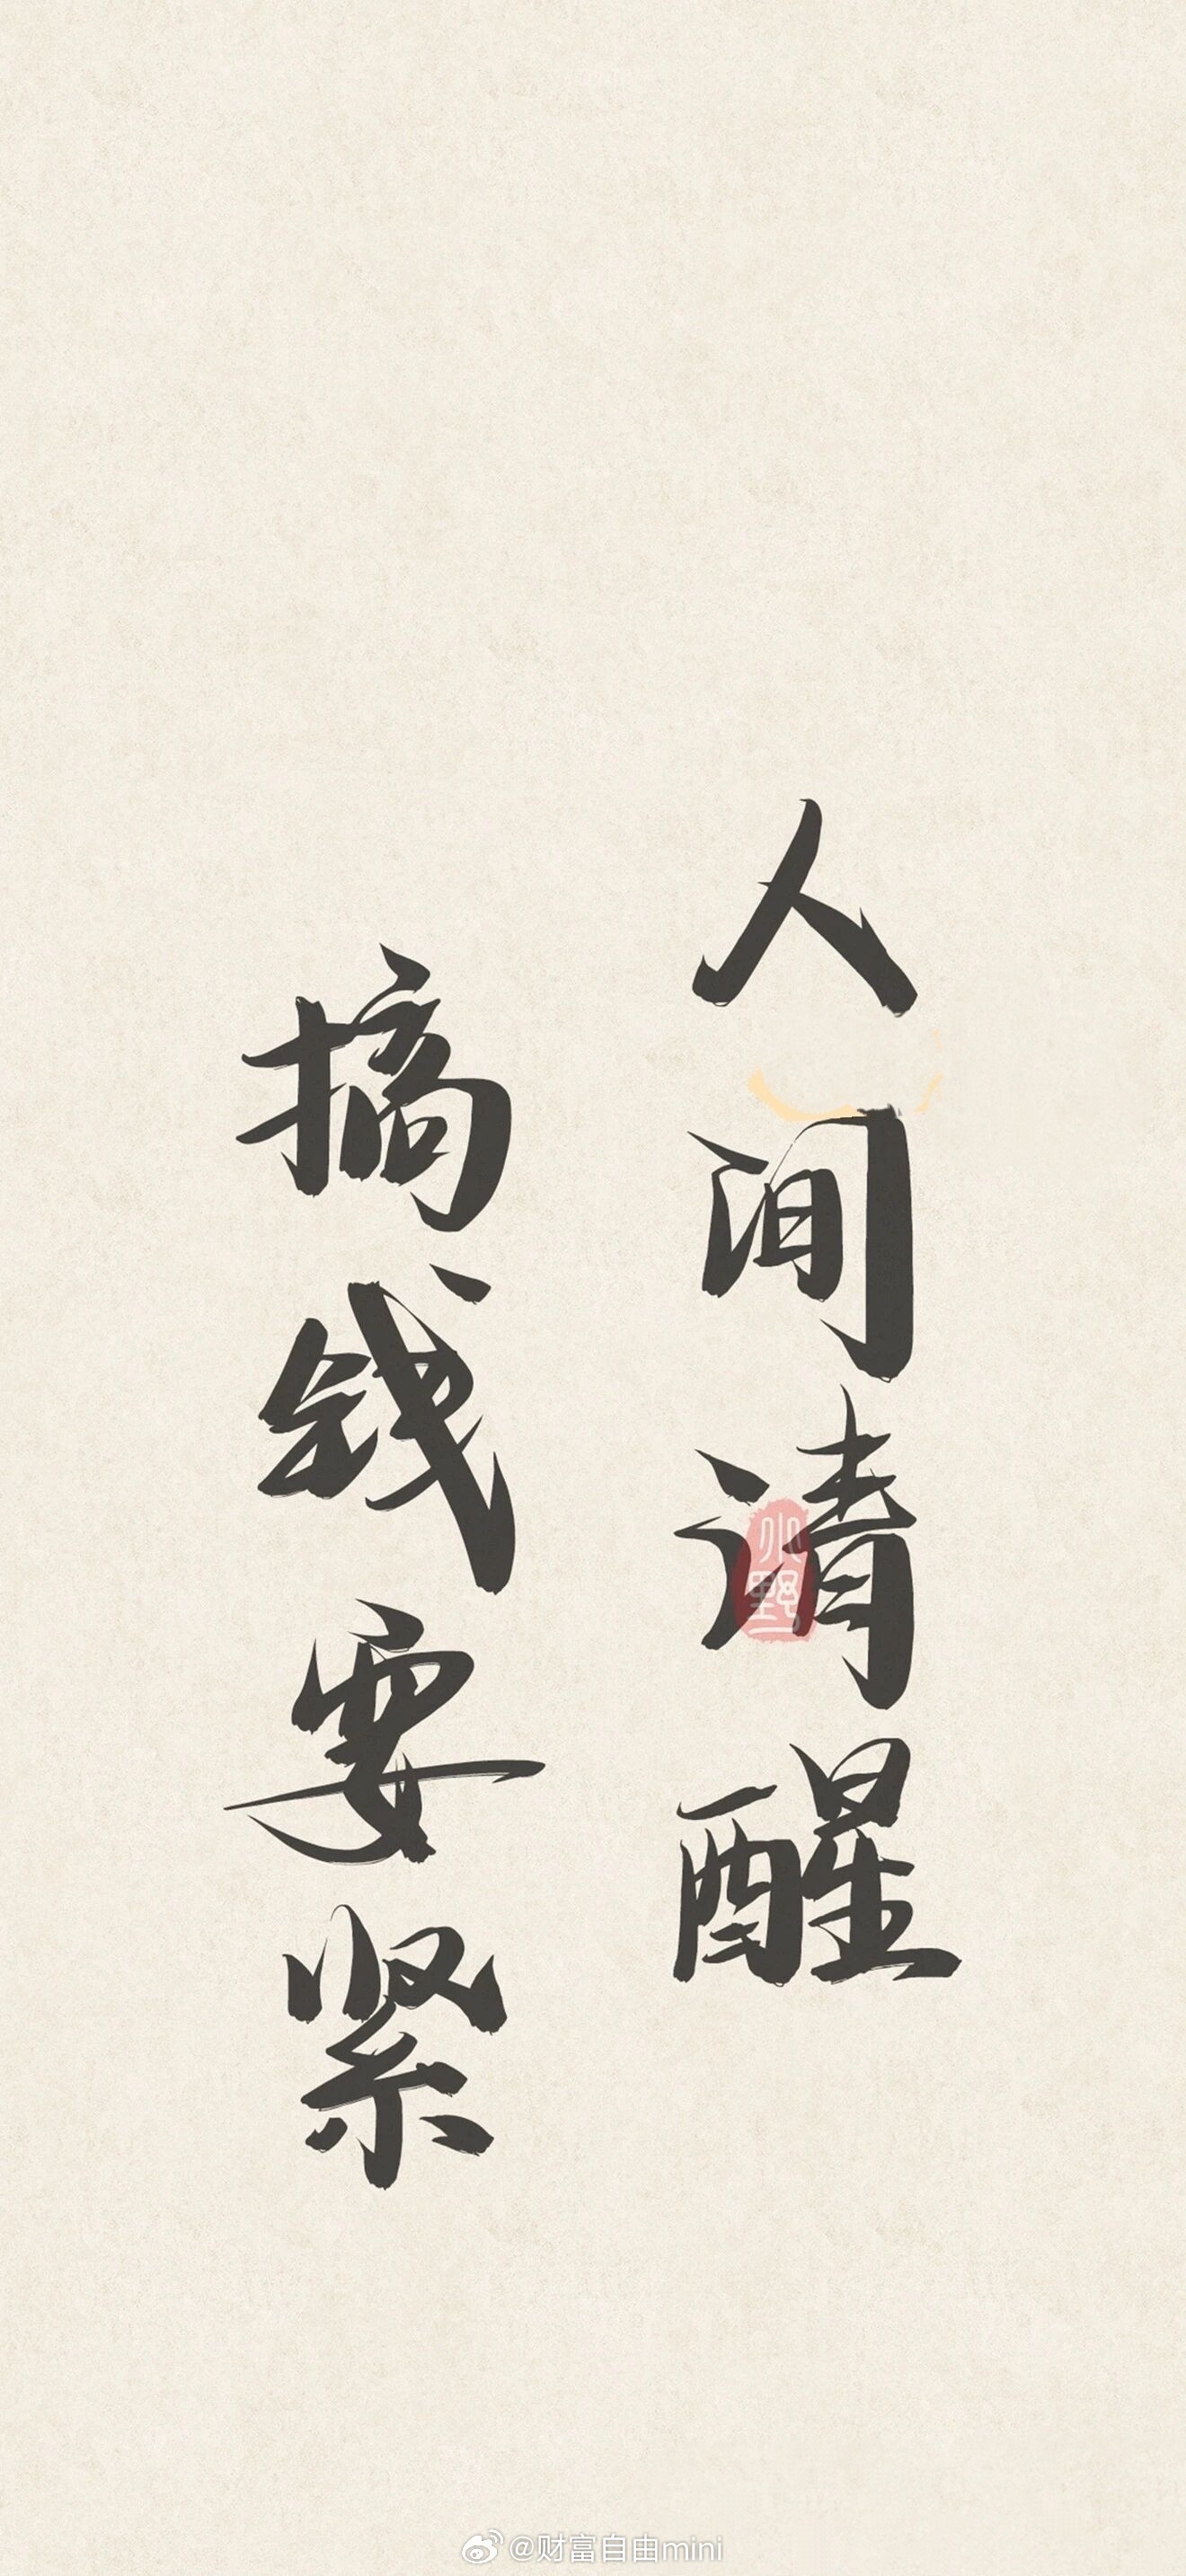 人间清醒
摘钱要紧
小野
@财富自由mini